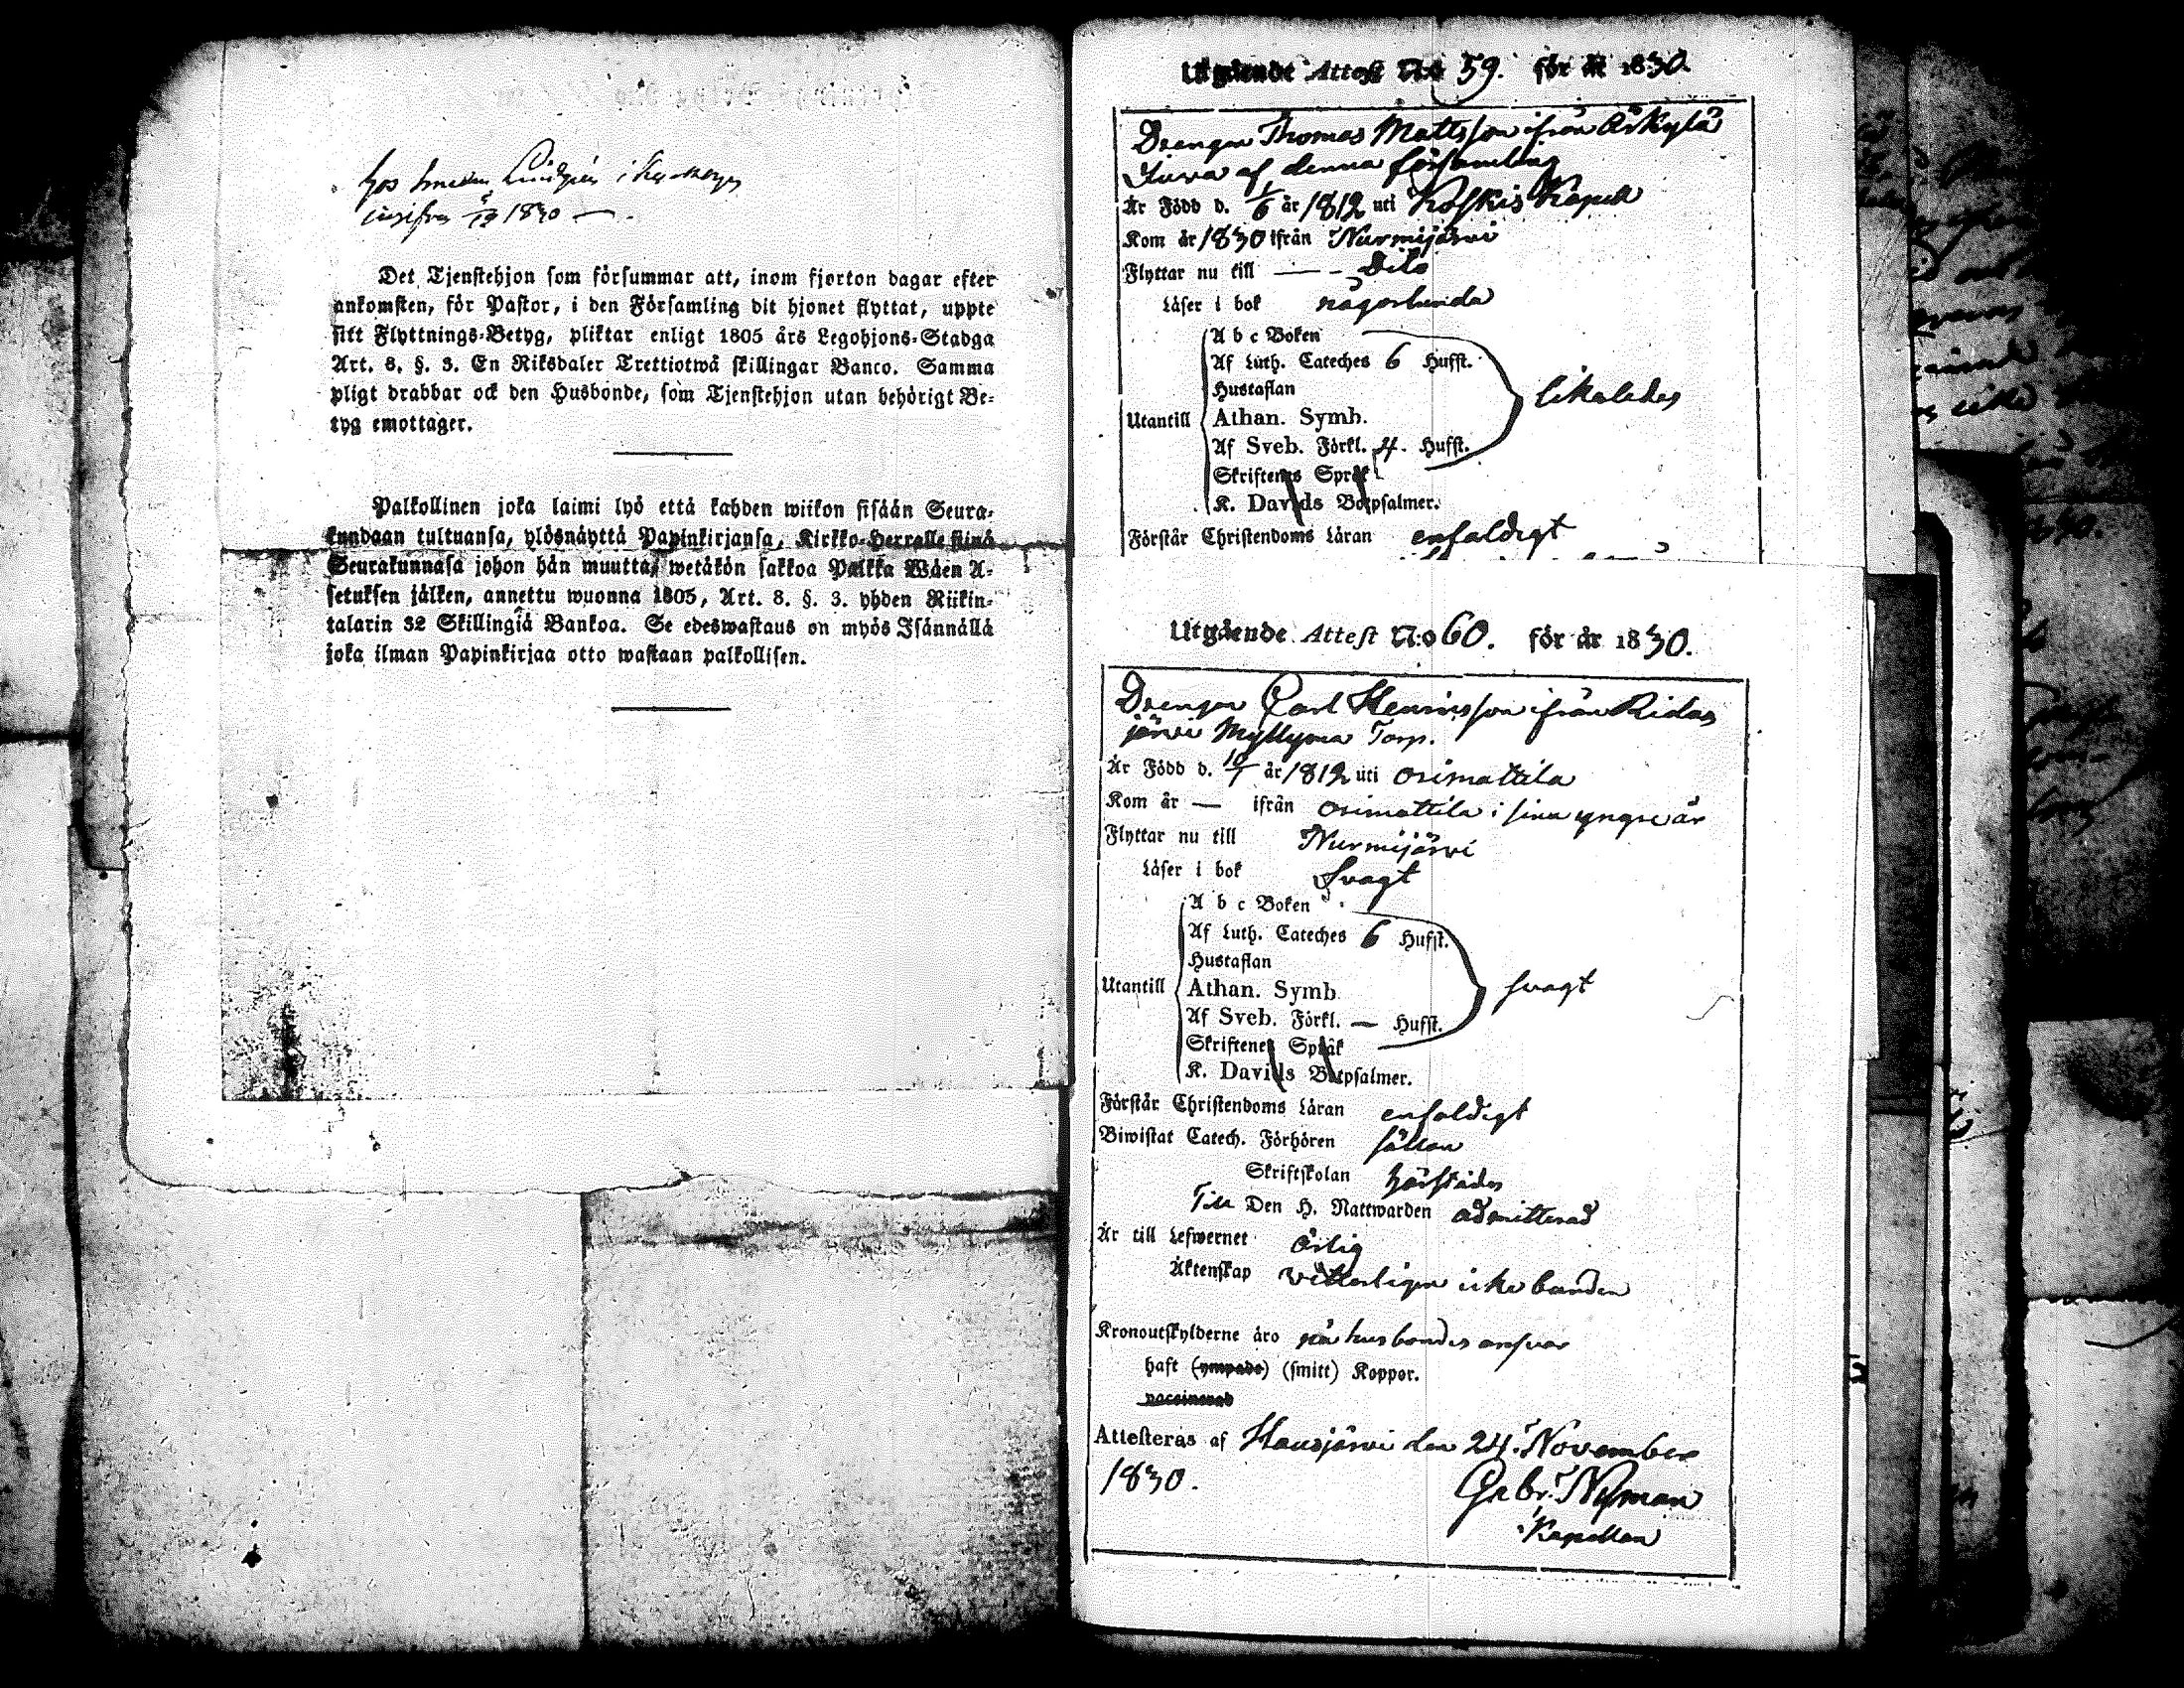 hos Smeden Lindgrén i
1830 —.
Det Tjenstehjon som försummar att, inom fjorton dagar efter
ankomsten, för Pastor, i den Församling dit hjonet flyttat, uppte
sitt Flyttnings-Betyg, pliktar enligt 1805 års Legohjons-Stadga
Art. 8. §. 3. En Riksdaler Trettiotwå skillingar Banco. Samma
pligt drabbar ock den Husbonde, som Tjenstehjon utan behörigt Be-
tyg emottager.
Palkollinen joka laimi lyö että kahden wiikon sisään Seura-
kundaan tultuansa, ylösnäyttä Papinkirjansa, Kirkko-Herralle siinä
Seurakunnasa johon hän muutta, wetäkön sakkoa Palkka Wäen A-
setuksen jälken, annettu wuonna 1805, Art. 8. §. 3. yhden Riikin-
talarin 32 Skillingiä Bankoa. Se edeswastaus on myös Isännällä
joka ilman Papinkirjaa otto wastaan palkollisen.
Utgående Attest N:o 59. för år 1830.
Drengen Thomas Mattsson ifrån Årkylä
af denna församling
Är Född d. 1/6 år 1812 uti Koskis Kapell
Kom år 1830 ifrån Nurmijärvi
Flyttar nu till — - Dito
Läser i bok någorlunda
A b c Boken
Af Luth. Cateches 6 Hufst.
Hustaflan
Utantill Athan. Symb. likaledes
Af Sveb. Förkl. 4. Hufst.
Skriftenes Språk
K. Davids Botpsalmer.
Förstår Christendoms Läran enfaldigt
Utgående Attest N:o 60. för år 1830.
Drengen Carl Henricsson ifrån Ridas
järvi Myllyma Torp.
Är Född d. 10/1 år 1812 uti Orimattila
Kom år — ifrån Orimattila i sina yngre år
Flyttar nu till Nurmijärvi
Läser i bok Svagt
A b c Boken
Af Luth. Cateches 6 Hufst.
Hustaflan
Utantill Athan. Symb svagt
Af Sveb. Förkl. — Hufst.
Skriftenes Språk
K. Davids Botpsalmer.
Förstår Christendoms Läran enfaldigt
Biwistat Catech. Förhören sällan
Skriftskolan härstädes
Till Den H. Nattwarden admitterad
Är till Lefwernet ärlig
Äktenskap vitterligen icke bunden
Kronoutskylderne äro på husbondes ansvar
haft (ympade) (smitt) Koppor.
vaccinerad
Attesteras af Hausjärvi den 24. November
1830. Gabr. Nyman
Kapellan